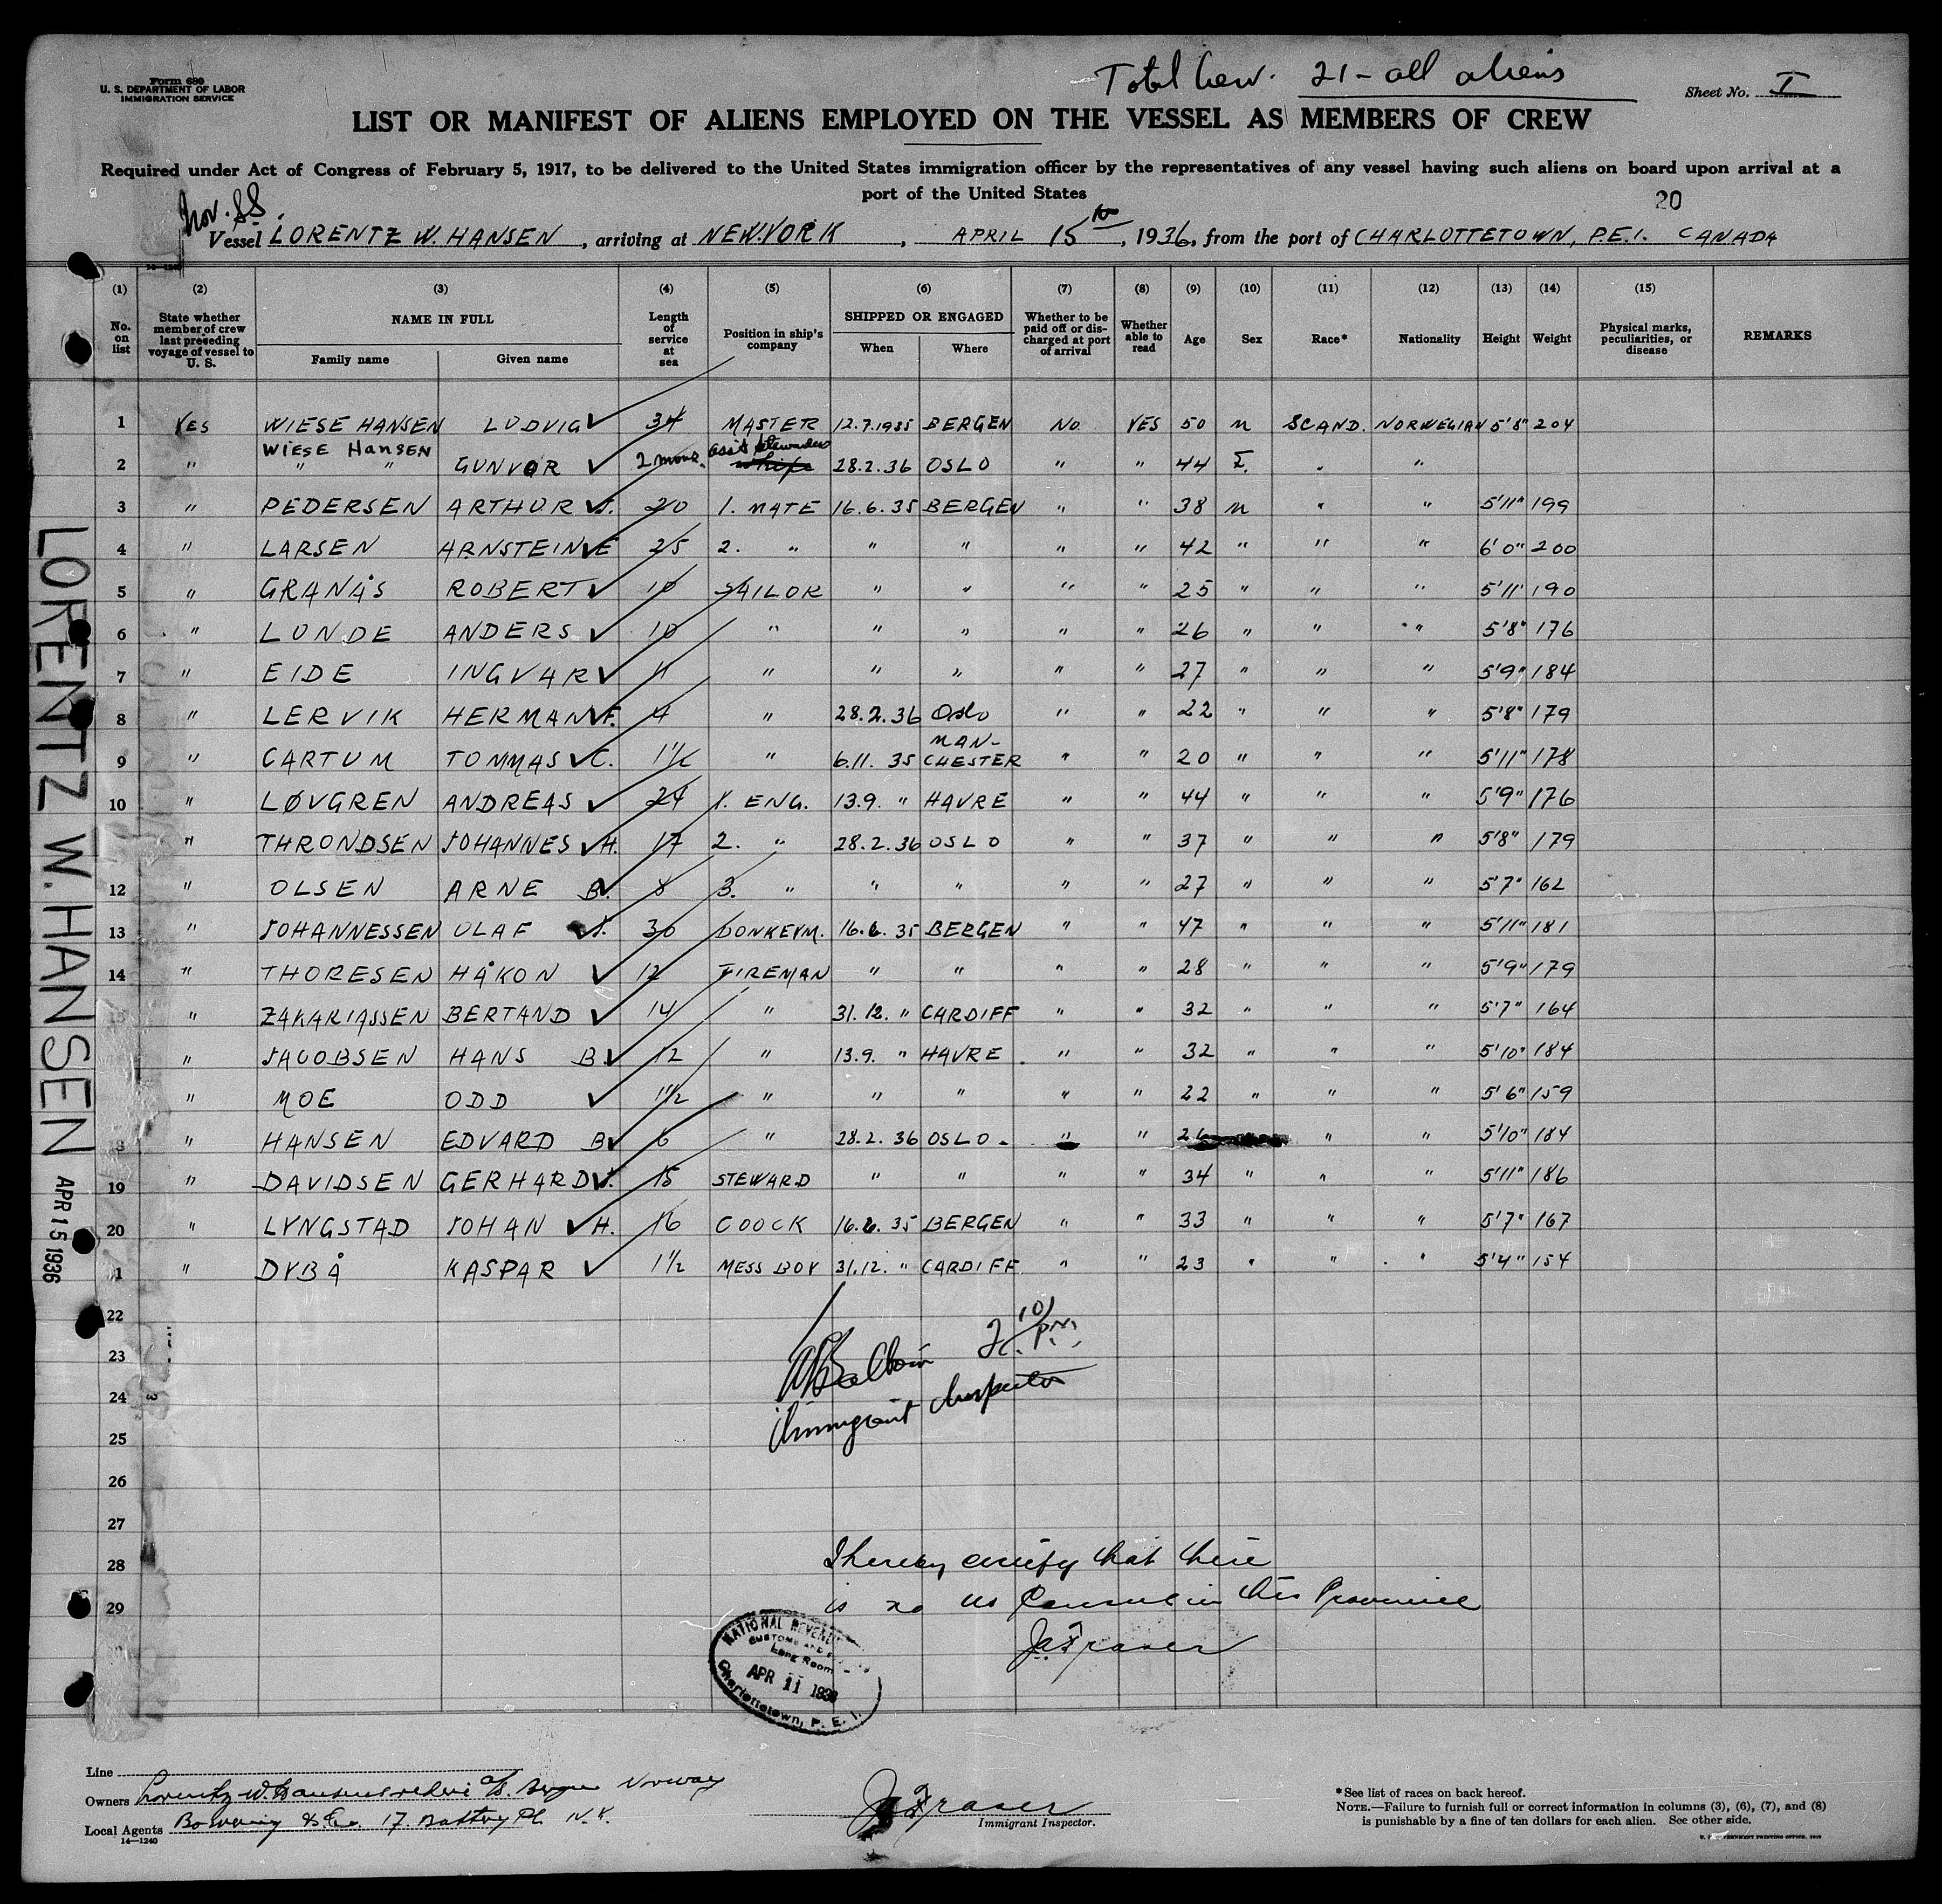 Total Crew. 21 - all aliens
Form 680
U. S. DEPARTMENT OF LABOR
IMMIGRATION SERVICE
Sheet No. I
LIST OR MANIFEST OF ALIENS EMPLOYED ON THE VESSEL AS MEMBERS OF CREW
Required under Act of Congress of February 5, 1917, to be delivered to the United States immigration officer by the representatives of any vessel having such aliens on board upon arrival at a
port of the United States
20
Nor. SS.
Vessel LORENTZ W. HANSEN, arriving at NEW.YORK, APRIL 15th, 1936, from the port of CHARLOTTETOWN, P.E.I. CANADA
(1) (2) (3) (4) (5) (6) (7) (8) (9) (10) (11) (12) (13) (14) (15)
No. on list State whether member of crew last preceding voyage of vessel to U. S. NAME IN FULL Family name Given name Length of service at sea Position in ship's company SHIPPED OR ENGAGED When Where Whether to be paid off or discharged at port of arrival Whether able to read Age Sex Race* Nationality Height Weight Physical marks, peculiarities, or disease REMARKS
1 YES WIESE HANSEN LUDVIG 34 MASTER 12.7.1935 BERGEN NO YES 50 M SCAND. NORWEGIAN 5'8" 204
Wiese Hansen asst Stewardess
2 " " " GUNVOR 2 mons. 28.2.36 OSLO " " 44 F. " "
3 " PEDERSEN ARTHUR J. 20 1. MATE 16.6.35 BERGEN " " 38 M " " 5'11" 199
4 " LARSEN ARNSTEIN E 25 2. " " " " " 42 " " " 6'0" 200
5 " GRANÅS ROBERT 10 SAILOR " " " " 25 " " " 5'11" 190
6 " LUNDE ANDERS 10 " " " " " 26 " " " 5'8" 176
7 " EIDE INGVAR 11 " " " " " 27 " " " 5'9" 184
8 " LERVIK HERMAN F. 4 " 28.2.36 Oslo " " 22 " " " 5'8" 179
9 " CARTUM TOMMAS C. 1 1/2 " 6.11.35 MANCHESTER " " 20 " " " 5'11" 178
10 " LØVGREN ANDREAS 24 1. ENG. 13.9. " HAVRE " " 44 " " " 5'9" 176
" THRONDSEN JOHANNES H. 17 2. " 28.2.36 OSLO " " 37 " " " 5'8" 179
12 " OLSEN ARNE B. 8 3. " " " " " 27 " " " 5'7" 162
13 " JOHANNESSEN OLAF J. 30 DONKEYM. 16.6.35 BERGEN " " 47 " " " 5'11" 181
14 " THORESEN HÅKON 12 FIREMAN " " " " 28 " " " 5'9" 179
" ZAKARIASSEN BERTAND 14 " 31.12. " CARDIFF " " 32 " " " 5'7" 164
" JACOBSEN HANS B 12 " 13.9. " HAVRE " " 32 " " " 5'10" 184
" MOE ODD 1 1/2 " " " " " 22 " " " 5'6" 159
8 " HANSEN EDVARD B 6 " 28.2.36 OSLO " " 26 " " 5'10" 184
19 " DAVIDSEN GERHARD J. 15 STEWARD " " " " 34 " " " 5'11" 186
20 " LYNGSTAD JOHAN H. 16 COOCK 16.6.35 BERGEN " " 33 " " " 5'7" 167
1 " DYBÅ KASPAR 1 1/2 MESS BOY 31.12. " CARDIFF " " 23 " " " 5'4" 154
22
23
24
25
26
27
28
29
2 10 P.M.
Immigrant Inspector
I hereby certify that there
is no US Consul in this Province
Jas Fraser
NATIONAL REVENUE
CUSTOMS AND
Long Room
APR 11 1936
Charlottetown, P. E. I.
LORENTZ W. HANSEN APR 15 1936
Line
Owners Lorentz W. Hansens rederi a/s. Bergen Norway
Local Agents Bowring & Co. 17 Battery Pl N.Y.
14—1240
Jas Fraser
Immigrant Inspector.
*See list of races on back hereof.
NOTE.—Failure to furnish full or correct information in columns (3), (6), (7), and (8)
is punishable by a fine of ten dollars for each alien. See other side.